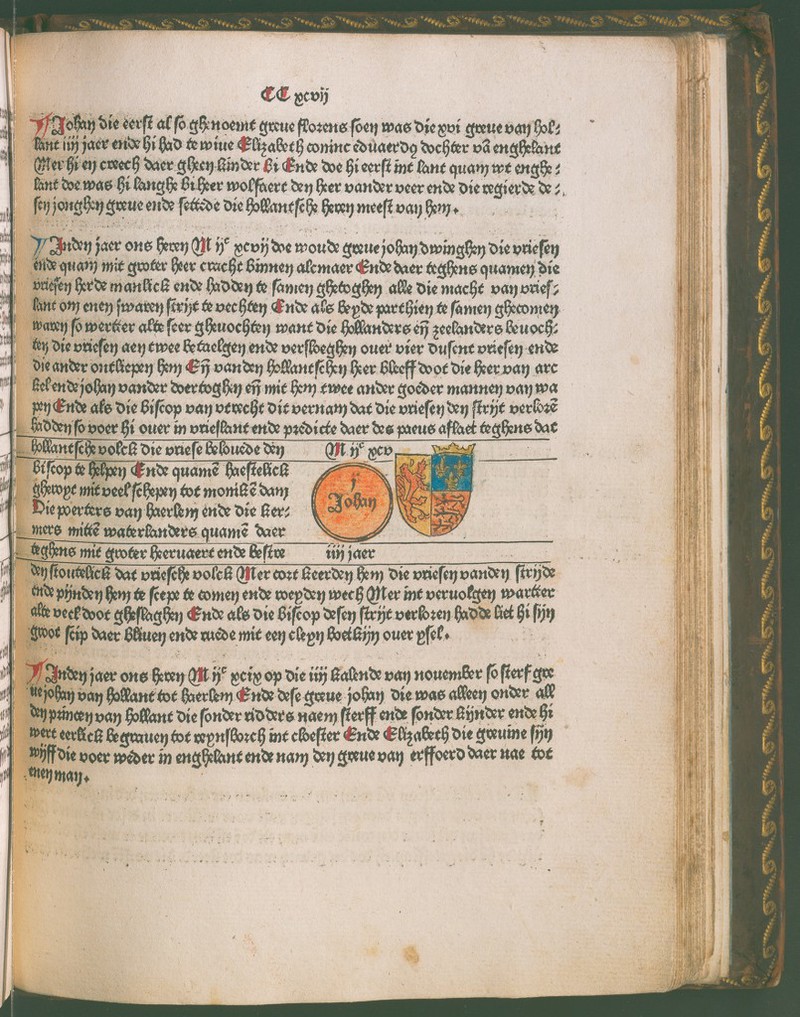 CC xcvij
Johan die eerst al so ghenoemt greue florens soen was die xvi greue van hol⸗
lant iiij jaer ende hi had te wiue Elizabeth coninc eduaerdꝫ dochter vā enghelant
Mer hi en creech daer gheen kinder bi Ende doe hi eerst int lant quam wt enghe⸗
lant doe was hi langhe bi heer wolfaert den heer vander veer ende die regierde de⸗
sen jonghen greue ende settede die hollantsche heren meest van hem.
Inden jaer ons heren M ijᶜ xcvij doe woude greue johan dwinghen die vriesen
ende quam mit groter heer cracht binnen alcmaer Ende daer teghens quamen die
vriesen herde manlick ende hadden te samen ghetoghen alle die macht van vries⸗
lant om enen swaren strijt te vechten Ende als beyde parthien te samen ghecomen
waren so wertter alte seer gheuochten want die hollanders eñ zeelanders beuoch⸗
ten die vriesen aen twee betaelgen ende versloeghen ouer vier dusent vriesen ende
die ander ontliepen hem Eñ vanden hollantschen heer bleeff doot die heer van arc
kel ende johan vander doertoghen eñ mit hem twee ander goeder mannen van wa
pen Ende als die biscop van vtrecht dit vernam dat die vriesen den strijt verlorē
hadden so voer hi ouer in vrieslant ende predicte daer des paeus aflaet teghens dat
hollantsche volck die vriese beloued̄e dēn
M ijᶜ xcv
biscop te helpen Ende quamē haestelick
gheroyt mit veel schepen tot monikē dam
Die poerters van haerlem ende die ker⸗
mers mittē waterlanders quamē daer
j
Johan
teghens mit groter heeruaert ende bestre
iiij jaer
den stoutelick dat vriesche volck Mer cort keerden hem die vriesen vanden strijde
ende pijnden hem te scepe te comen ende roeyden wech Mer int veruolgen wartter
alte veel doot gheslaghen Ende als die biscop desen strijt verloren hadde liet hi sijn
groot scip daer bliuen ende ruede mit een cleyn boetkijn ouer ysel.
Inden jaer ons heren M ijᶜ xcix op die iiij kalende van nouember so sterf gre
ue johan van hollant tot haerlem Ende dese greue johan die was alleen onder all
den princen van hollant die sonder ridders naem sterff ende sonder kijnder ende hi
wert eerlick begrauen tot reynsborch int cloester Ende Elizabeth die greuine sijn
wijff die voer weder in enghelant ende nam den greue van erffoerd daer nae tot
enen man.